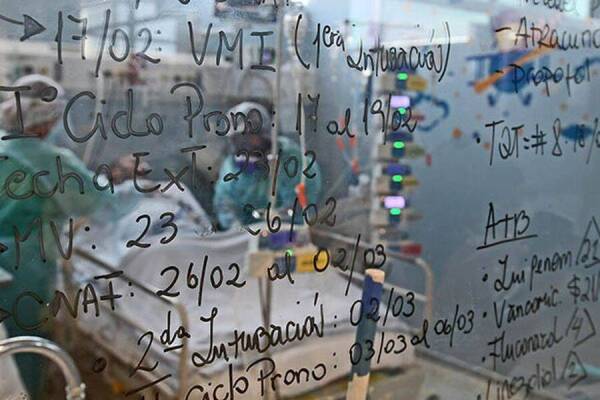 17/02: VMI (1era Intubación)
1° Ciclo Prono: 17 al 19/02
Fecha Ext: 23/02
MV: 23 - 26/02
CNAF: 26/02 al 02/03
2da Intubación: 02/03
Ciclo Prono: 03/03 al 06/03
- Atracuri
- Propofol
TOT: # 8
ATB
Imipenem
Vancomic
Fluconazol
Linezolid